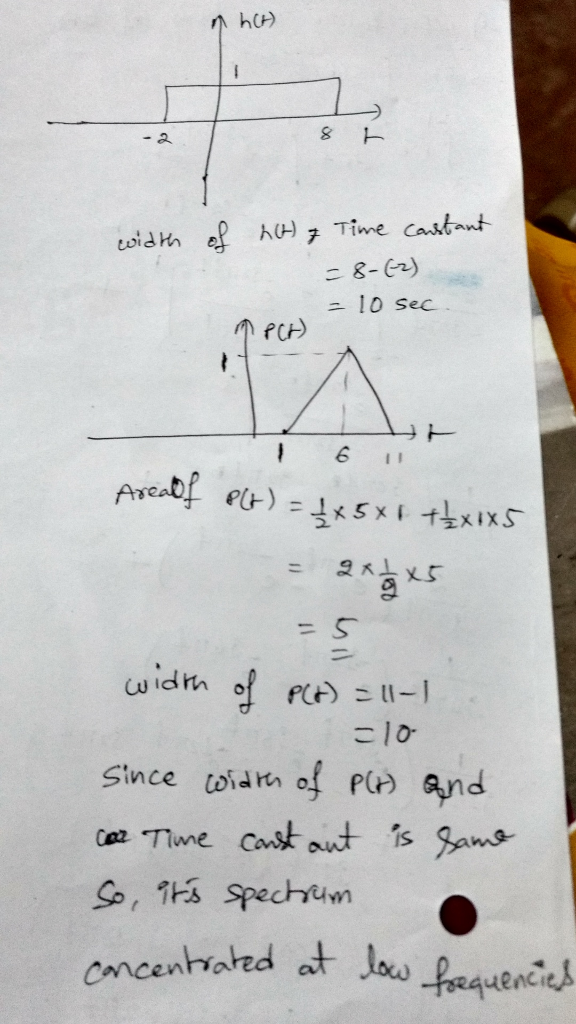 h(t)
1
-2 8 t
width of h(t) = Time constant
= 8-(-2)
= 10 sec.
P(t)
1
t
1 6 11
Area of P(t) = 1/2 x 5 x 1 + 1/2 x 1 x 5
= 2 x 1/2 x 5
= 5
width of P(t) = 11-1
= 10
Since width of P(t) and
Time constant is same
So, it's spectrum
concentrated at low frequencies